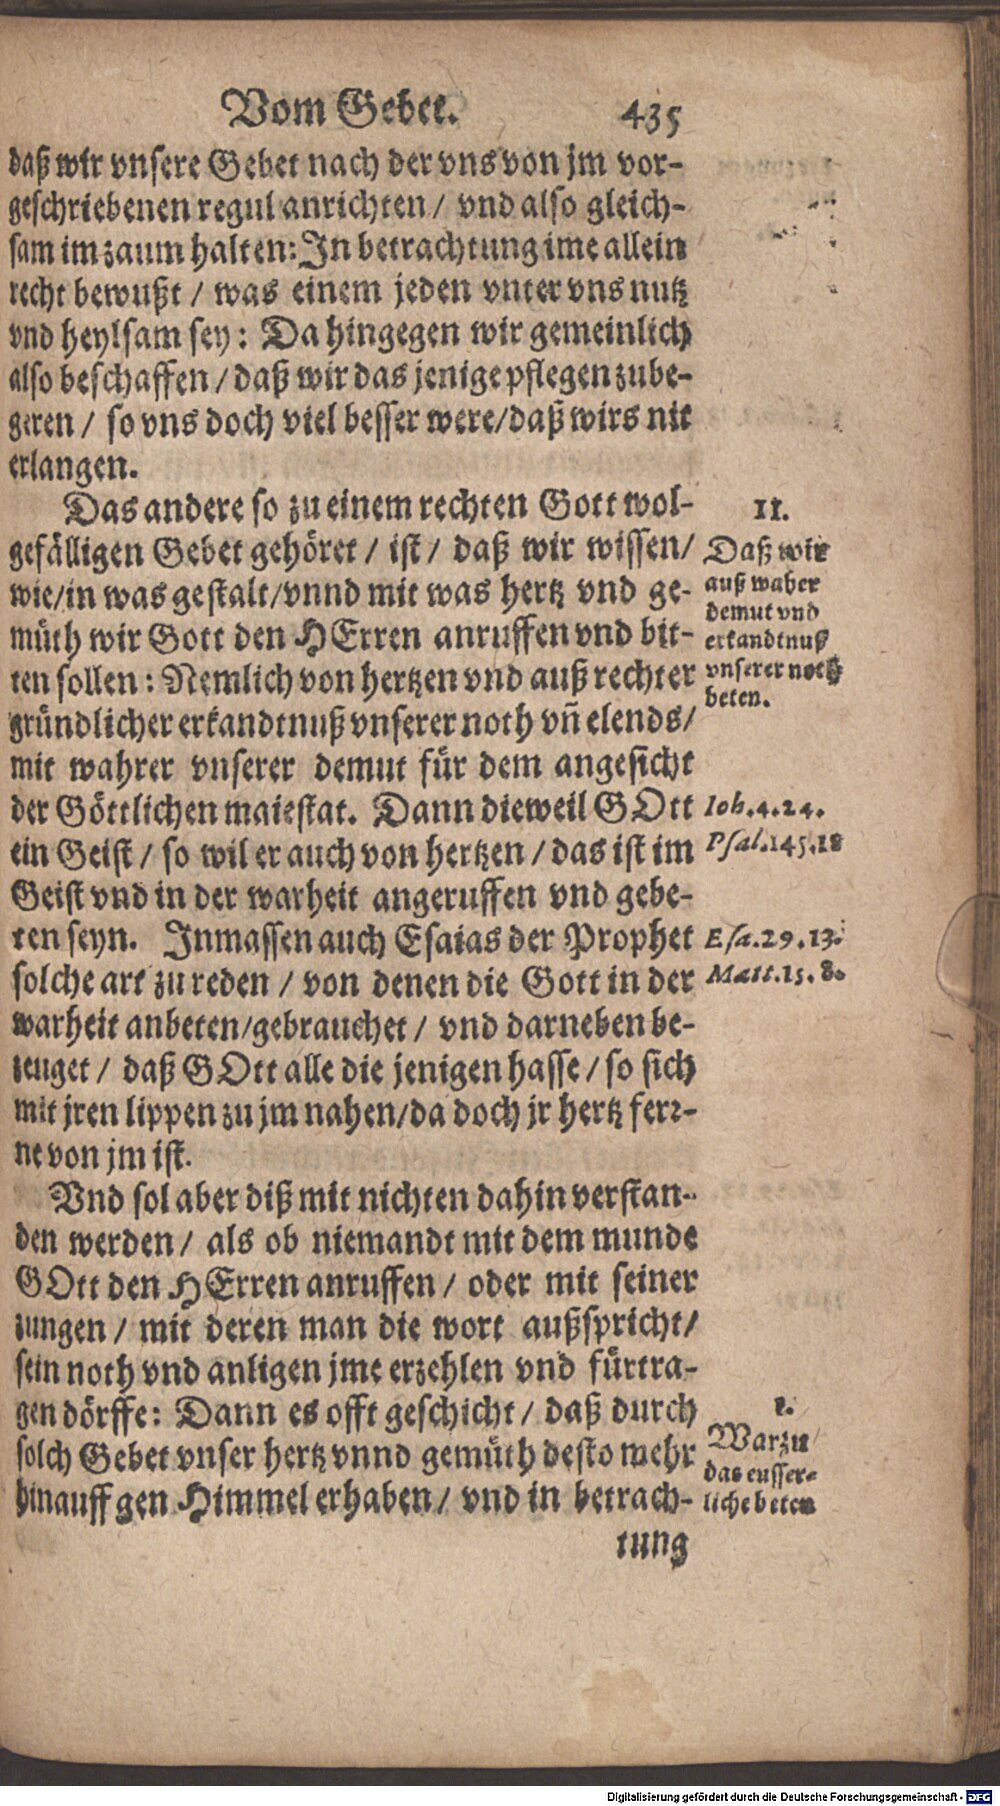 Vom Gebet. 435
daß wir vnsere Gebet nach der vns von jm vor-
geschriebenen regul anrichten / vnd also gleich-
sam im zaum halten: In betrachtung ime allein
recht bewußt / was einem jeden vnter vns nutz
vnd heylsam sey: Da hingegen wir gemeinlich
also beschaffen / daß wir das jenige pflegen zube-
geren / so vns doch viel besser were/daß wirs nit
erlangen.
Das andere so zu einem rechten Gott wol-
gefälligen Gebet gehöret / ist / daß wir wissen/
wie/in was gestalt/vnnd mit was hertz vnd ge-
müth wir Gott den HErren anruffen vnd bit-
ten sollen: Nemlich von hertzen vnd auß rechter
gründlicher erkandtnuß vnserer noth vn̄ elends/
mit wahrer vnserer demut für dem angesicht
der Göttlichen maiestat. Dann dieweil GOtt
ein Geist / so wil er auch von hertzen / das ist im
Geist vnd in der warheit angeruffen vnd gebe-
ten seyn. Inmassen auch Esaias der Prophet
solche art zu reden / von denen die Gott in der
warheit anbeten/gebrauchet / vnd darneben be-
zeuget / daß GOtt alle die jenigen hasse / so sich
mit jren lippen zu jm nahen/da doch jr hertz ferr-
ne von jm ist.
Vnd sol aber diß mit nichten dahin verstan-
den werden / als ob niemandt mit dem munde
GOtt den HErren anruffen / oder mit seiner
zungen / mit deren man die wort außspricht/
sein noth vnd anligen jme erzehlen vnd fürtra-
gen dörffe: Dann es offt geschicht / daß durch
solch Gebet vnser hertz vnnd gemüth desto mehr
hinauff gen Himmel erhaben / vnd in betrach-
tung
II.
Daß wir
auß waher
demut vnd
erkandtnuß
vnserer noth
beten.
Ioh.4.24.
Psal.145.18
Esa.29.13.
Matt.15.8.
1.
Warzu
das eusser-
liche beten
Digitalisierung gefördert durch die Deutsche Forschungsgemeinschaft - DFG